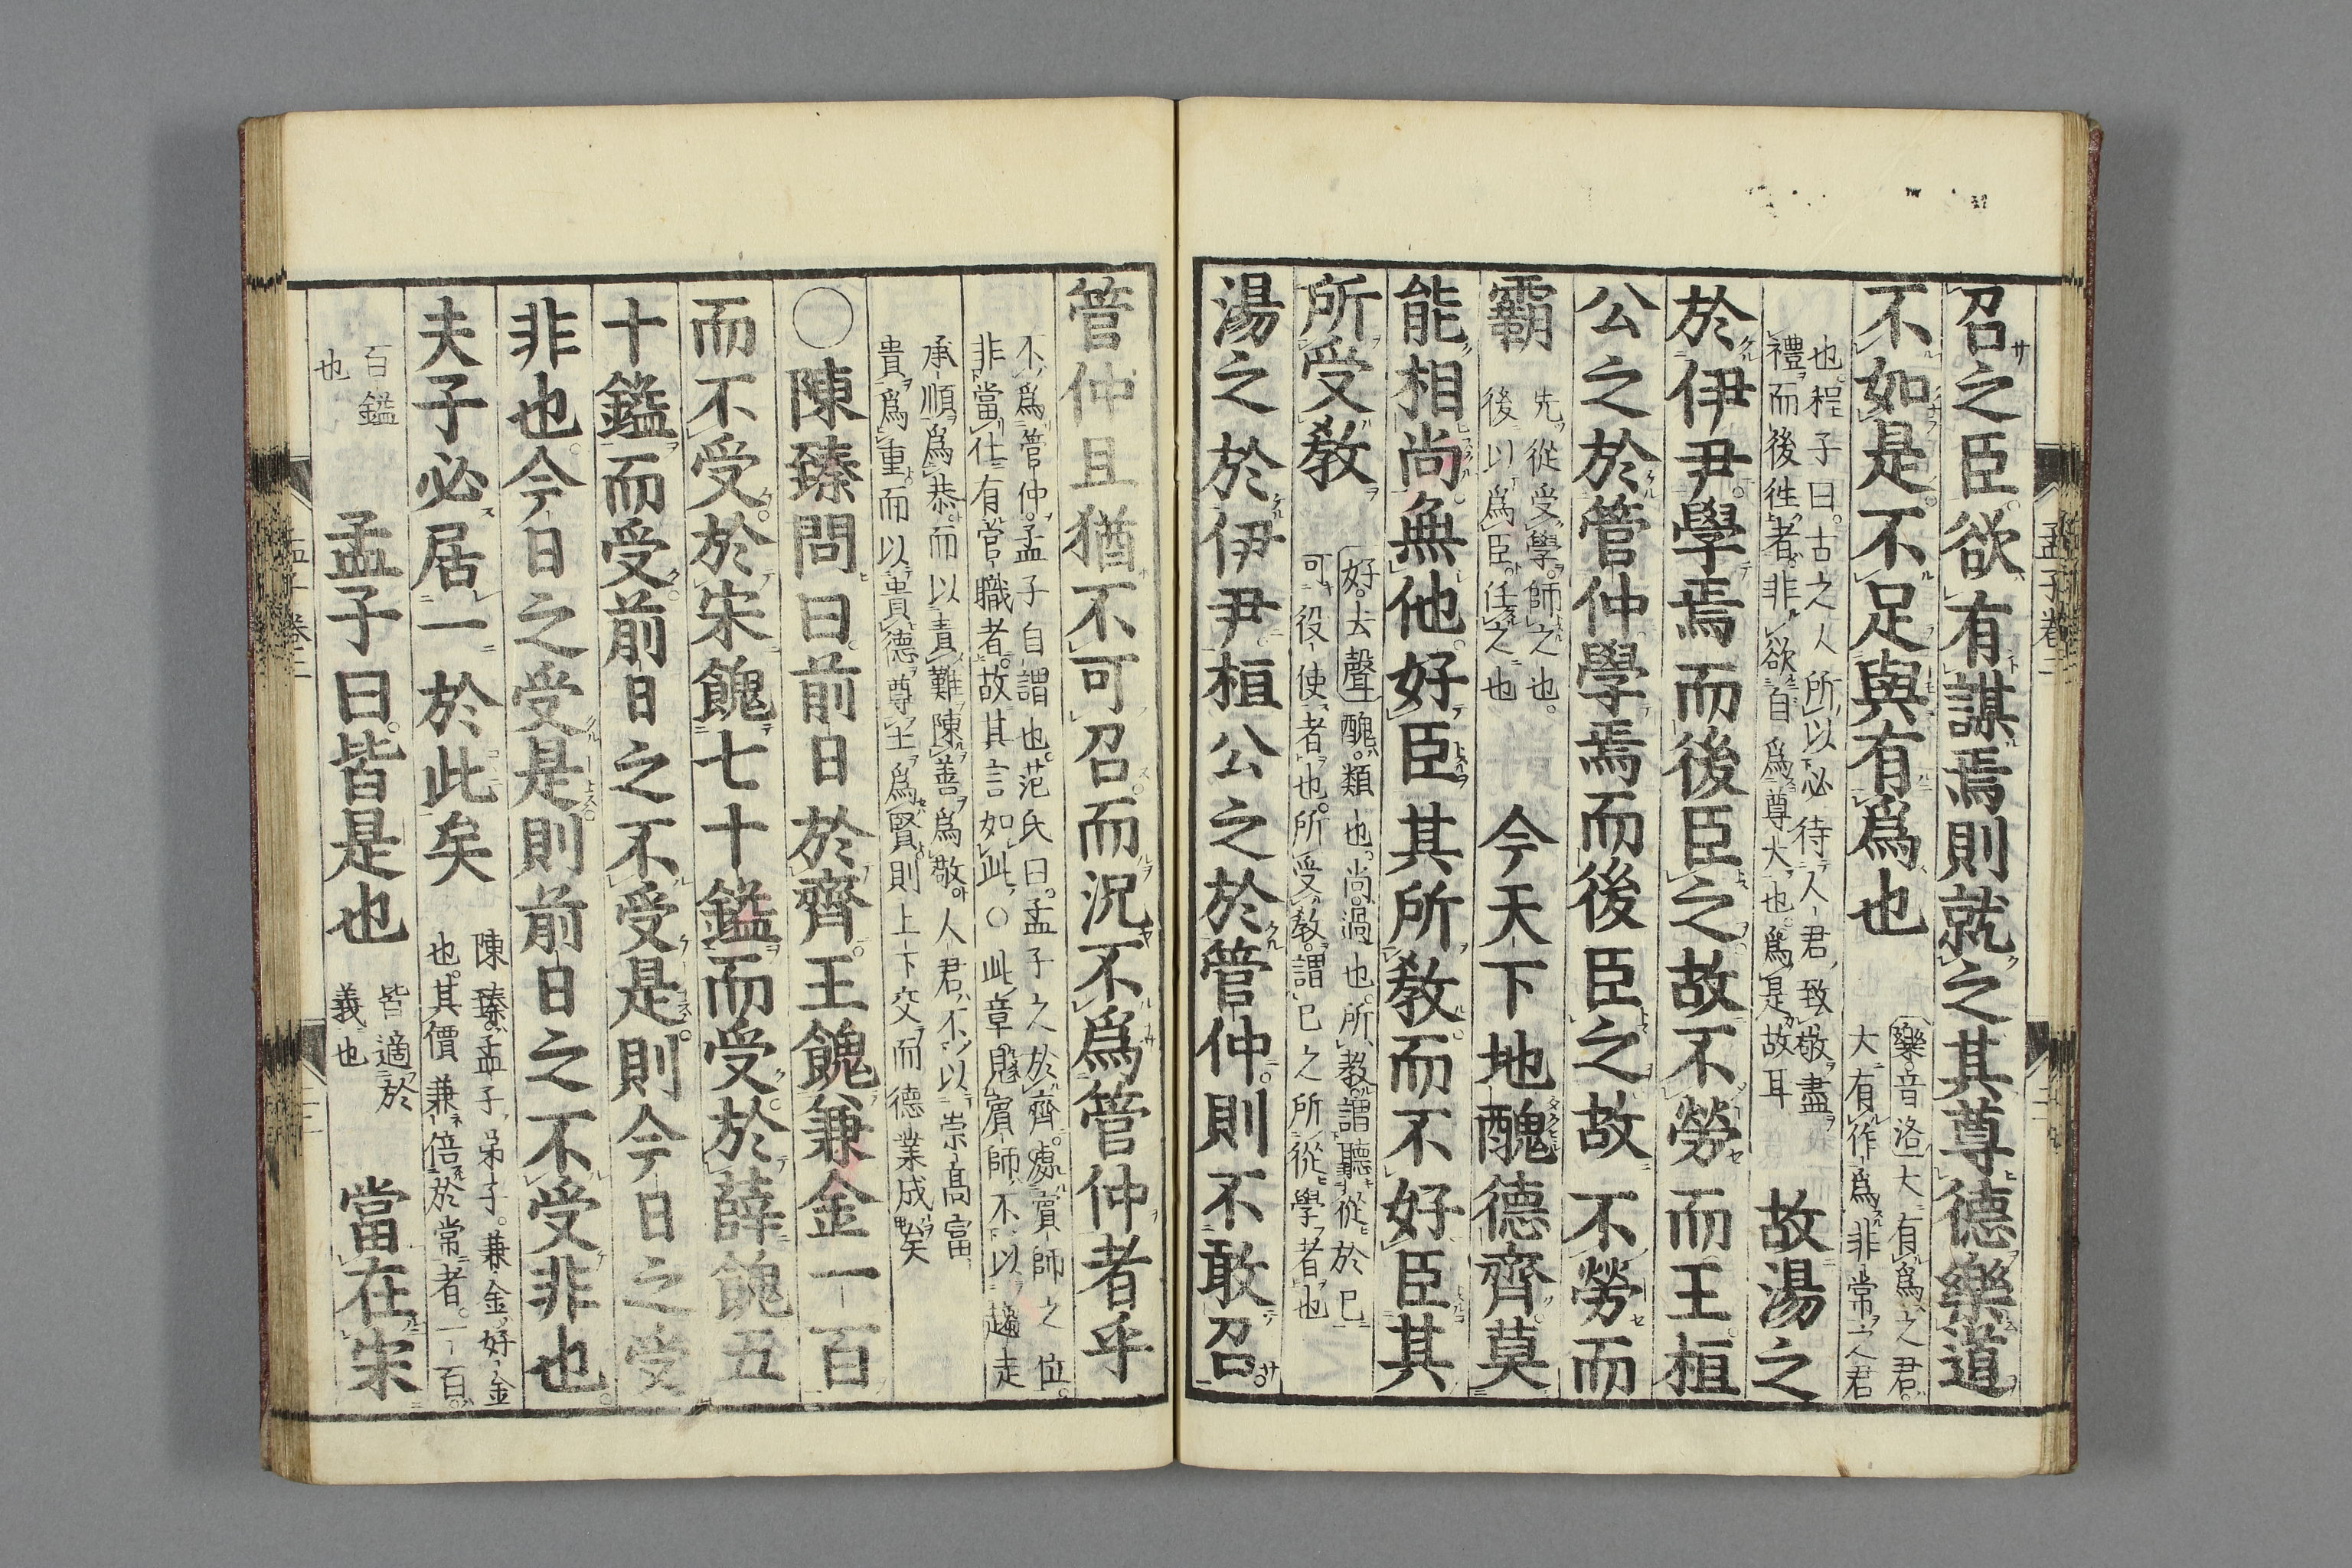 召之臣欲有謀焉則就之其尊德樂道
不如是不足與有爲也
樂音洛大有爲之君
大有作爲非常之君
也程子曰古之人所以必待人君致敬盡
禮而後徃者非欲自爲尊大也爲是故耳
故湯之
於伊尹學焉而後臣之故不勞而王桓
公之於管仲學焉而後臣之故不勞而
霸
先從受學師之也
後以爲臣任之也
今天下地醜德齊莫
能相尚無他好臣其所敎而不好臣其
所受敎
好去聲醜類也尚過也所敎謂聽從於已
可役使者也所受敎謂已之所從學者也
湯之於伊尹桓公之於管仲則不敢召
管仲且猶不可召而況不爲管仲者乎
不爲管仲孟子自謂也范氏曰孟子之於齊處賓師之位
非當仕有官職者故其言如此○此章見賓師不以趨走
承順爲恭而以責難陳善爲敬人君不以崇高富
貴爲重而以貴德尊士爲賢則上下交而德業成矣
○陳臻問曰前日於齊王餽兼金一百
而不受於宋餽七十鎰而受於薛餽五
十鎰而受前日之不受是則今日之受
非也今日之受是則前日之不受非也
夫子必居一於此矣
陳臻孟子弟子兼金好金
也其價兼倍於常者一百
百鎰
也
孟子曰皆是也
皆適於
義也
當在宋
孟子卷二